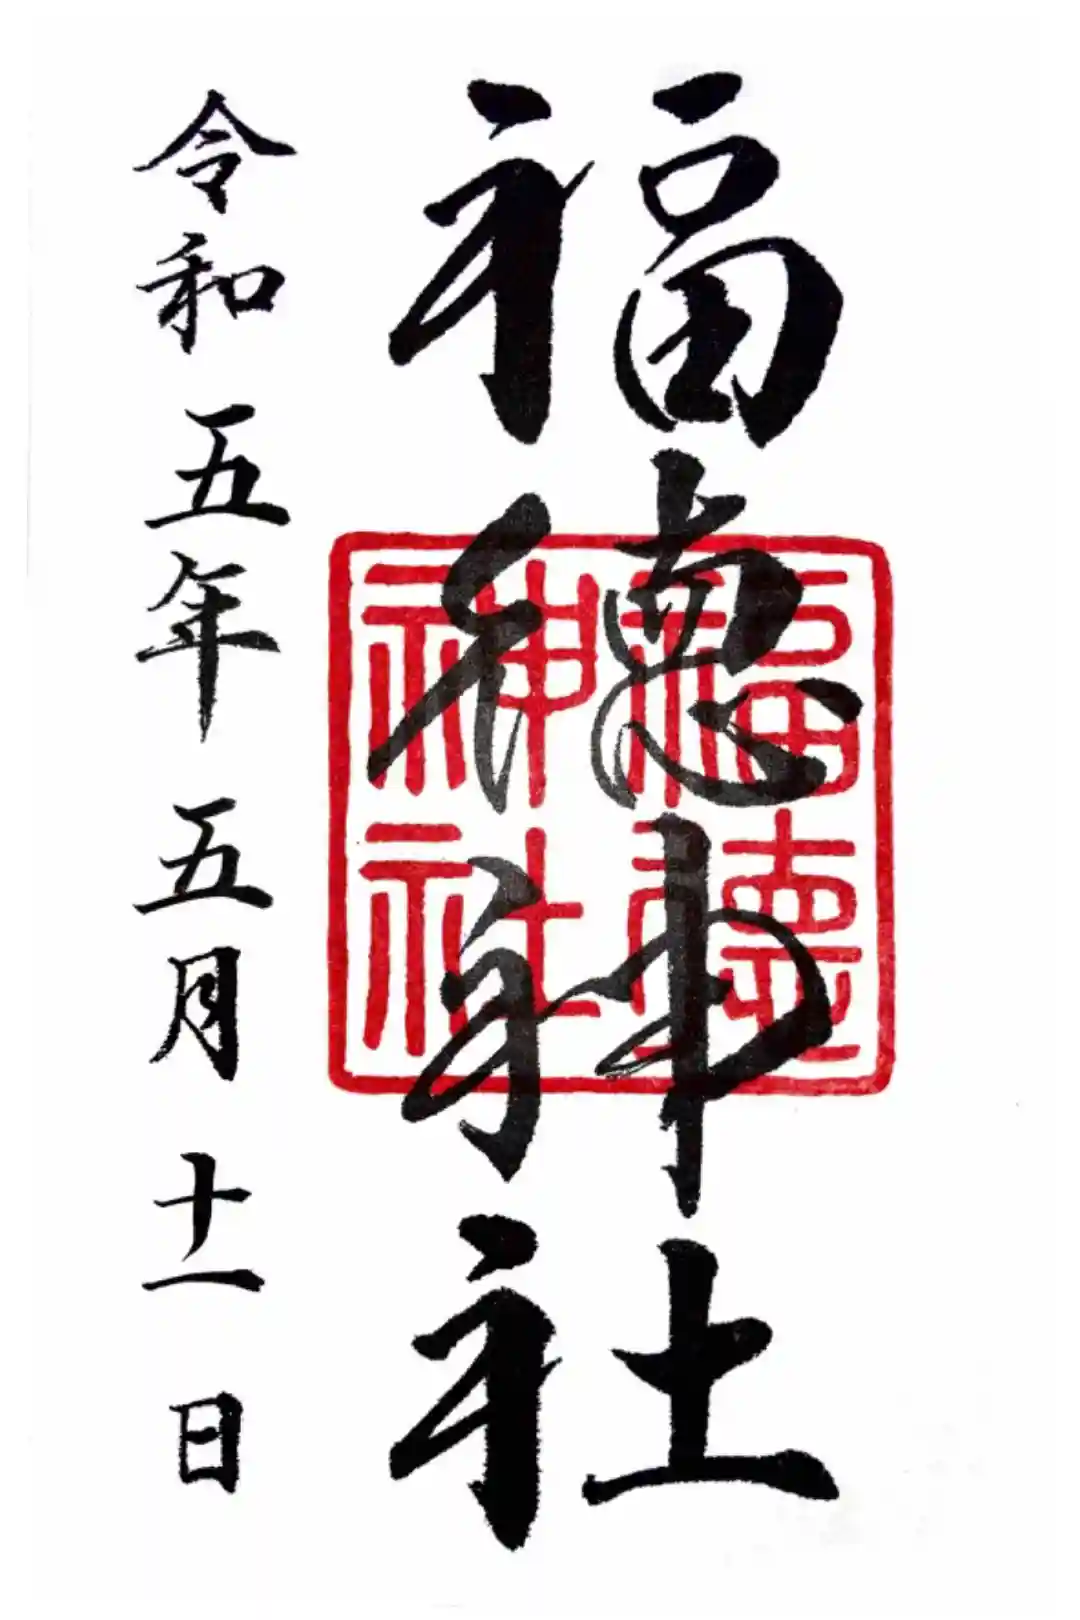 福徳神社
福徳神社
令和五年五月十一日